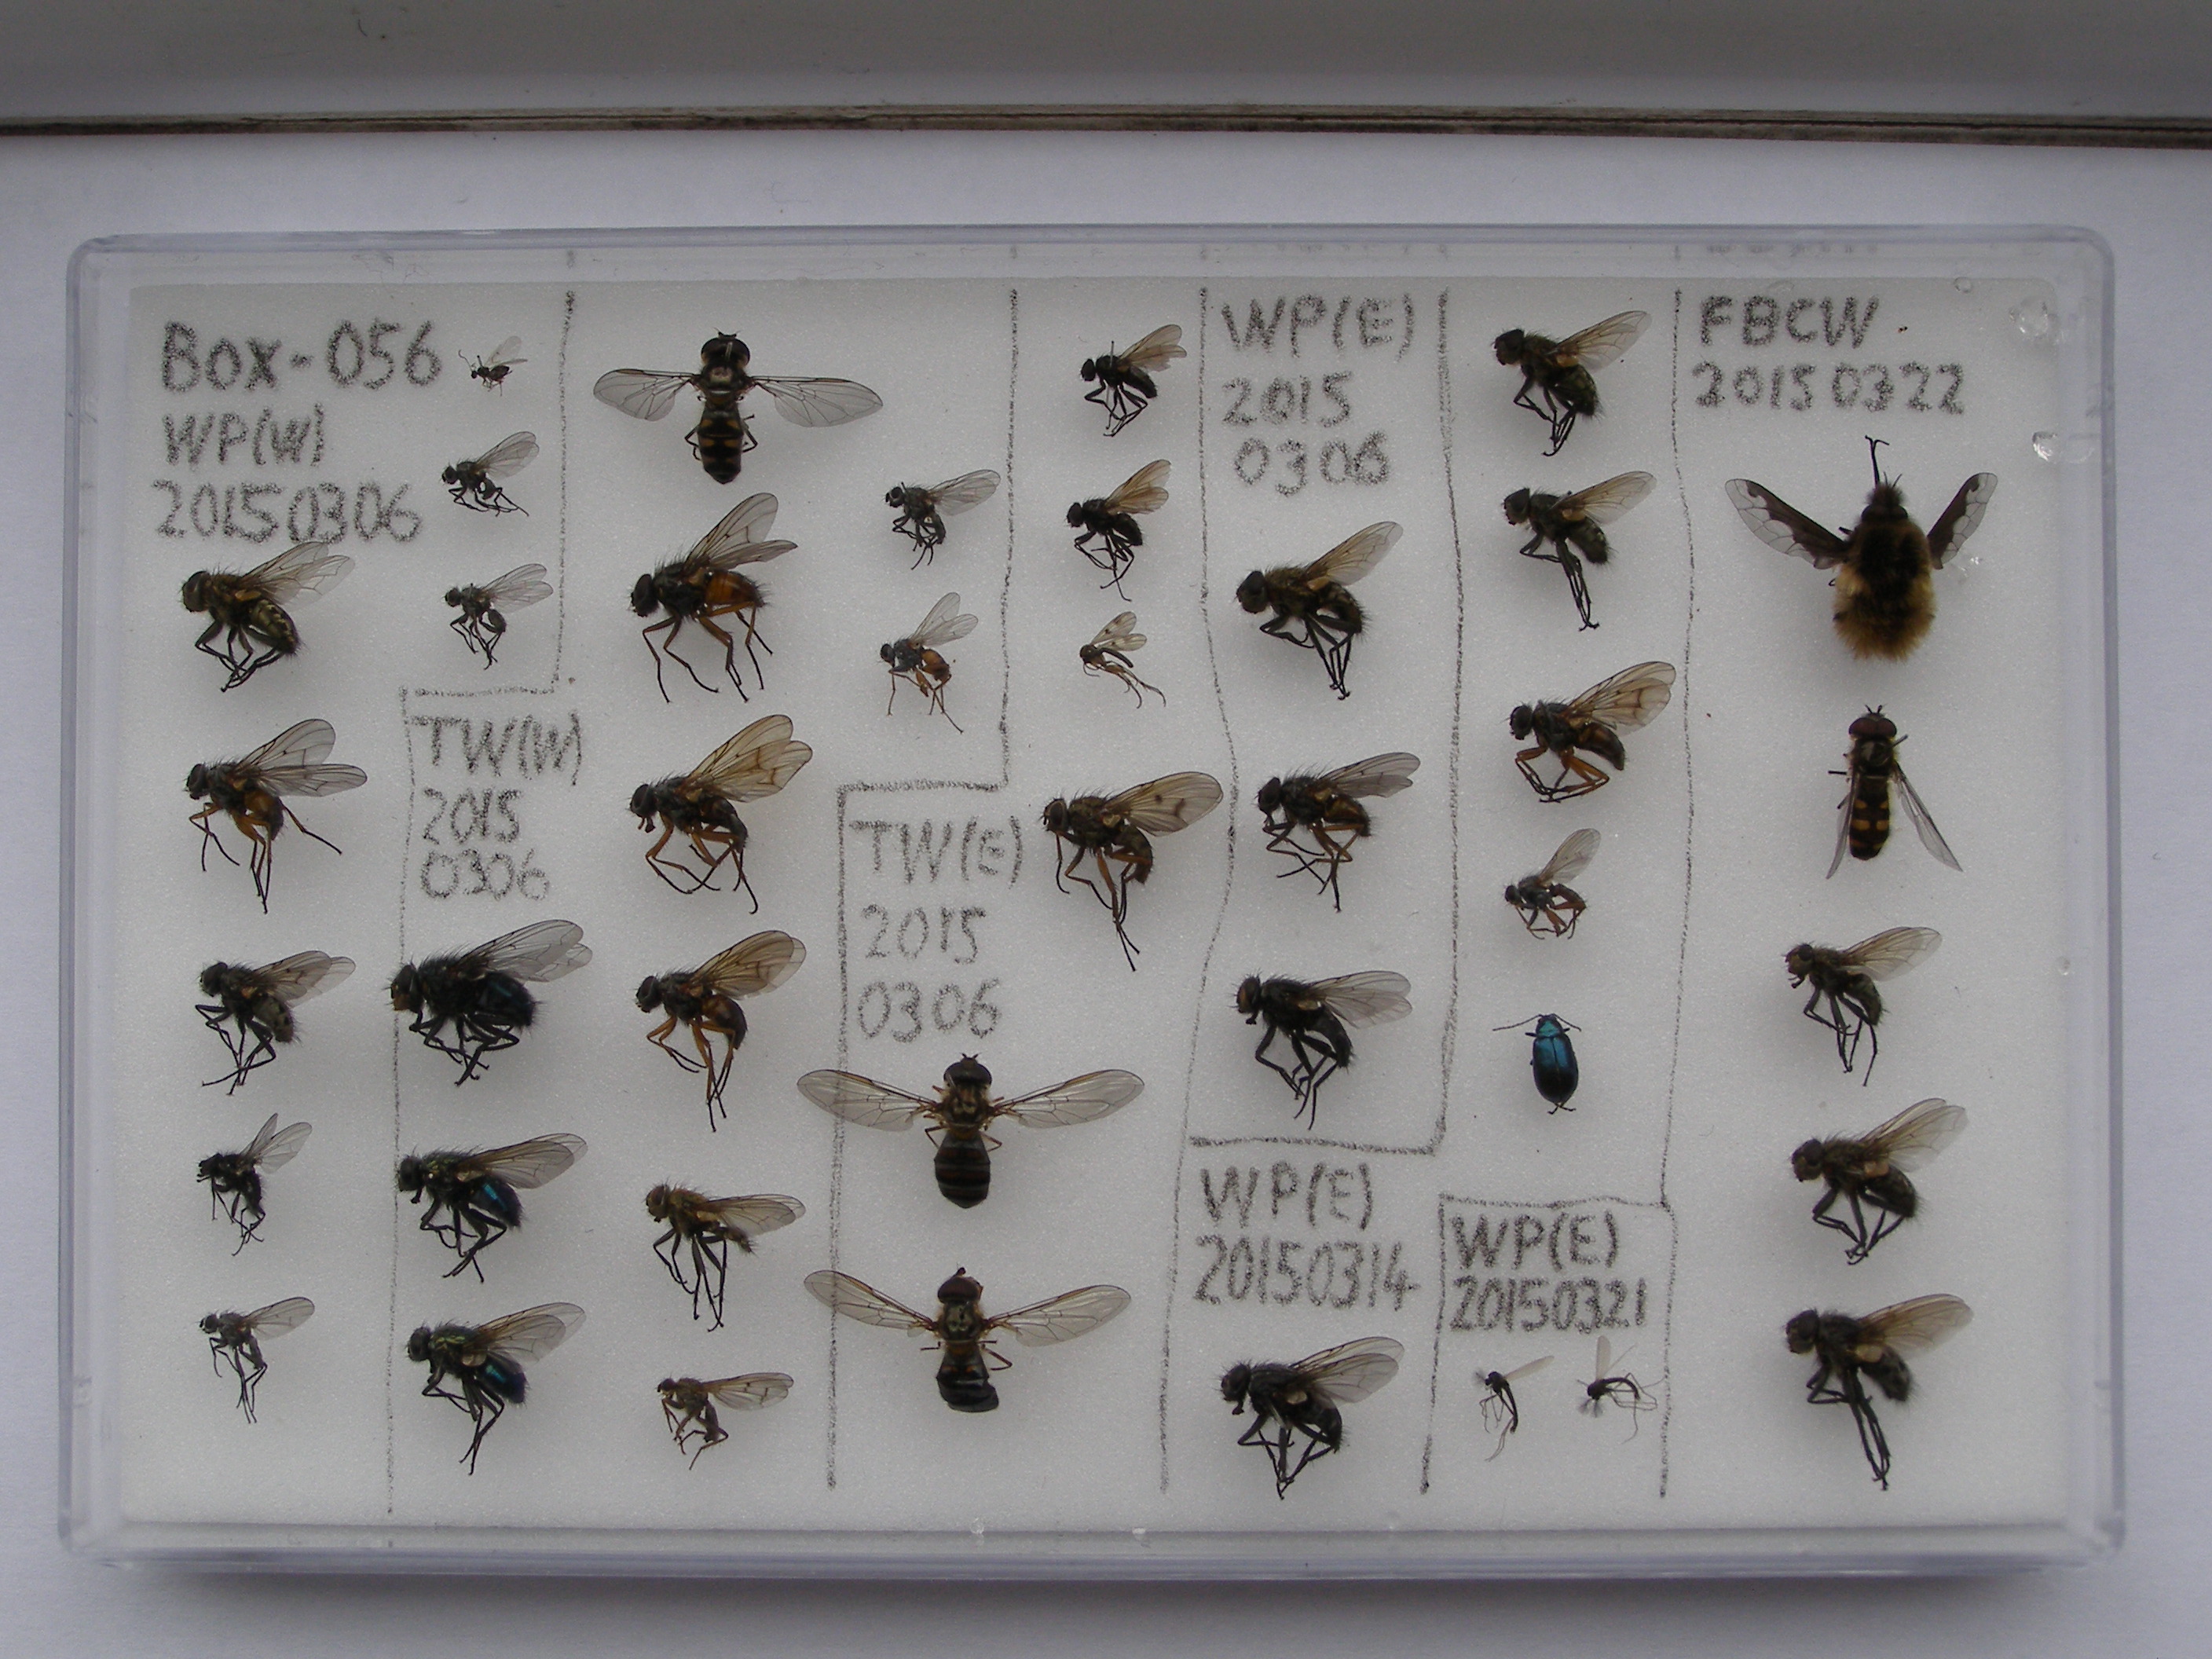 Box-056
WP(W)
20150306
TW(W)
2015
0306
TW(E)
2015
0306
WP(E)
2015
0306
WP(E)
20150314
WP(E)
20150321
FBCW
20150322